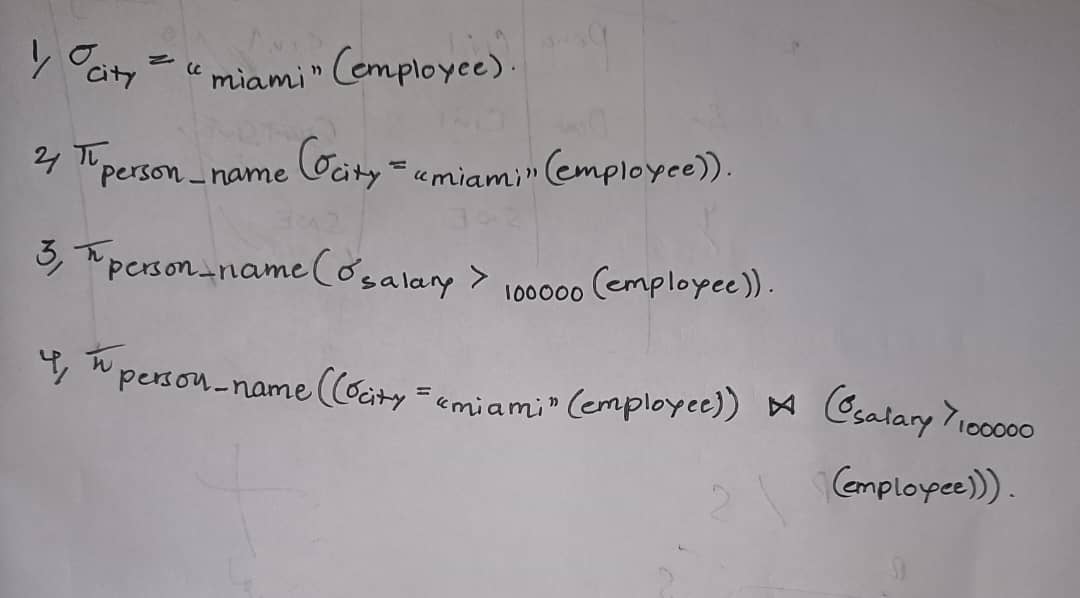 1, σ city = “miami” (employee).
2, π person_name (σcity = “miami” (employee)).
3, π person_name (σsalary > 100000 (employee)).
4, π person_name ((σcity = “miami” (employee)) ⋈ (σsalary > 100000
(employee))).